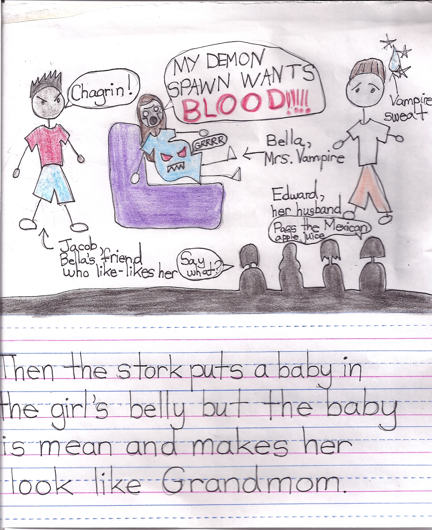 Chagrin!
MY DEMON
SPAWN WANTS
BLOOD!!!!!
GRRRR
Vampire
sweat
Bella,
Mrs. Vampire
Edward,
her husband
Jacob,
Bella's friend
who like-likes her
Say
what?
Pass the Mexican
apple juice
Then the stork puts a baby in
the girl's belly but the baby
is mean and makes her
look like Grandmom.